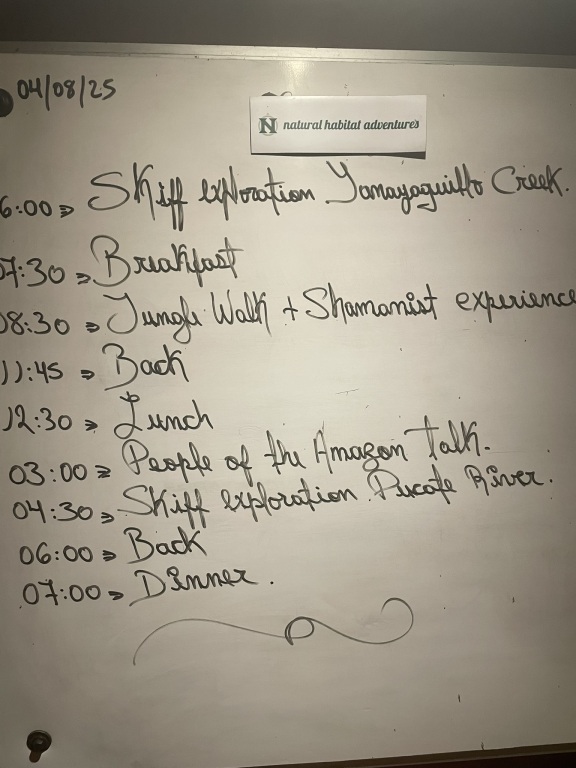 04/08/25
N natural habitat adventures
6:00 => Skiff exploration Yanayaquillo Creek.
07:30 => Breakfast
08:30 => Jungle Walk + Shamanist experience
11:45 => Back
12:30 => Lunch
03:00 => People of the Amazon Talk.
04:30 => Skiff exploration Pucate River.
06:00 => Back
07:00 => Dinner.